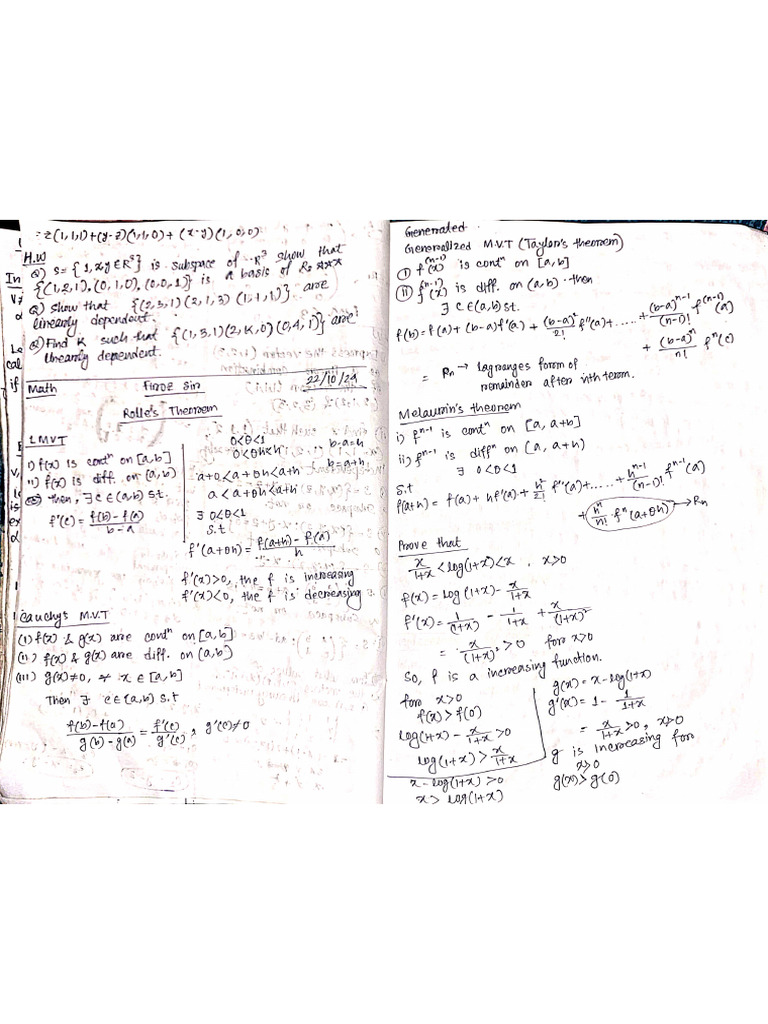 = z(1,1,1)+(y-z)(1,1,0)+(x-y)(1,0,0)
H.W
Q) S = {1,x,y ∈ R³} is subspace of R³ show that
{(1,2,1), (0,1,0), (0,0,1)} is a basis of R³ ***
Q) Show that {(2,3,1)(2,1,3)(1,1,1)} are
linearly dependent.
Q) Find K such that {(1,3,1)(2,K,0)(0,4,1)} are
linearly dependent.
Math Firoz Sir 22/10/24
Rolle's Theorem
LMVT
i) f(x) is contⁿ on [a,b]
ii) f(x) is diff. on (a,b)
then, ∃ c ∈ (a,b) s.t.
f'(c) = (f(b)-f(a))/(b-a)
0<θ<1
0<θh<h
a+0<a+θh<a+h
a<a+θh<a+h
b-a=h
b=a+h
∃ 0<θ<1
s.t
f'(a+θh) = (f(a+h)-f(a))/h
f'(x)>0, the f is increasing
f'(x)<0, the f is decreasing
Cauchy's M.V.T
(i) f(x) & g(x) are contⁿ on [a,b]
(ii) f(x) & g(x) are diff. on (a,b)
(iii) g(x)≠0, ∀ x ∈ [a,b]
Then ∃ c∈(a,b) s.t
(f(b)-f(a))/(g(b)-g(a)) = f'(c)/g'(c), g'(c)≠0
Generated
Generallized M.V.T (Taylor's theorem)
(i) f^(n-1)(x) is contⁿ on [a,b]
(ii) f^(n-1)(x) is diff. on (a,b) then
∃ c∈(a,b) s.t.
f(b) = f(a) + (b-a)f'(a) + (b-a)²/2! f''(a) + ...... + (b-a)^(n-1)/(n-1)! f^(n-1)(a)
+ (b-a)^n/n! f^n(c)
= Rn → lagranges form of
remainder after nth term.
Melaurin's theorem
i) f^(n-1) is contⁿ on [a, a+b]
ii) f^(n-1) is diffⁿ on (a, a+h)
∃ 0<θ<1
s.t
f(a+h) = f(a) + hf'(a) + h²/2! f''(a) + ...... + h^(n-1)/(n-1)! f^(n-1)(a)
+ h^n/n! f^n(a+θh) → Rn
Prove that
x/(1+x) < log(1+x) < x, x>0
f(x) = log(1+x) - x/(1+x)
f'(x) = 1/(1+x) - 1/(1+x) + x/(1+x)²
= x/(1+x)² > 0 for x>0
So, f is a increasing function.
for x>0
f(x) > f(0)
log(1+x) - x/(1+x) > 0
log(1+x) > x/(1+x)
g(x) = x - log(1+x)
g'(x) = 1 - 1/(1+x)
= x/(1+x) > 0, x>0
g is increasing for
x>0
g(x) > g(0)
x - log(1+x) > 0
x > log(1+x)